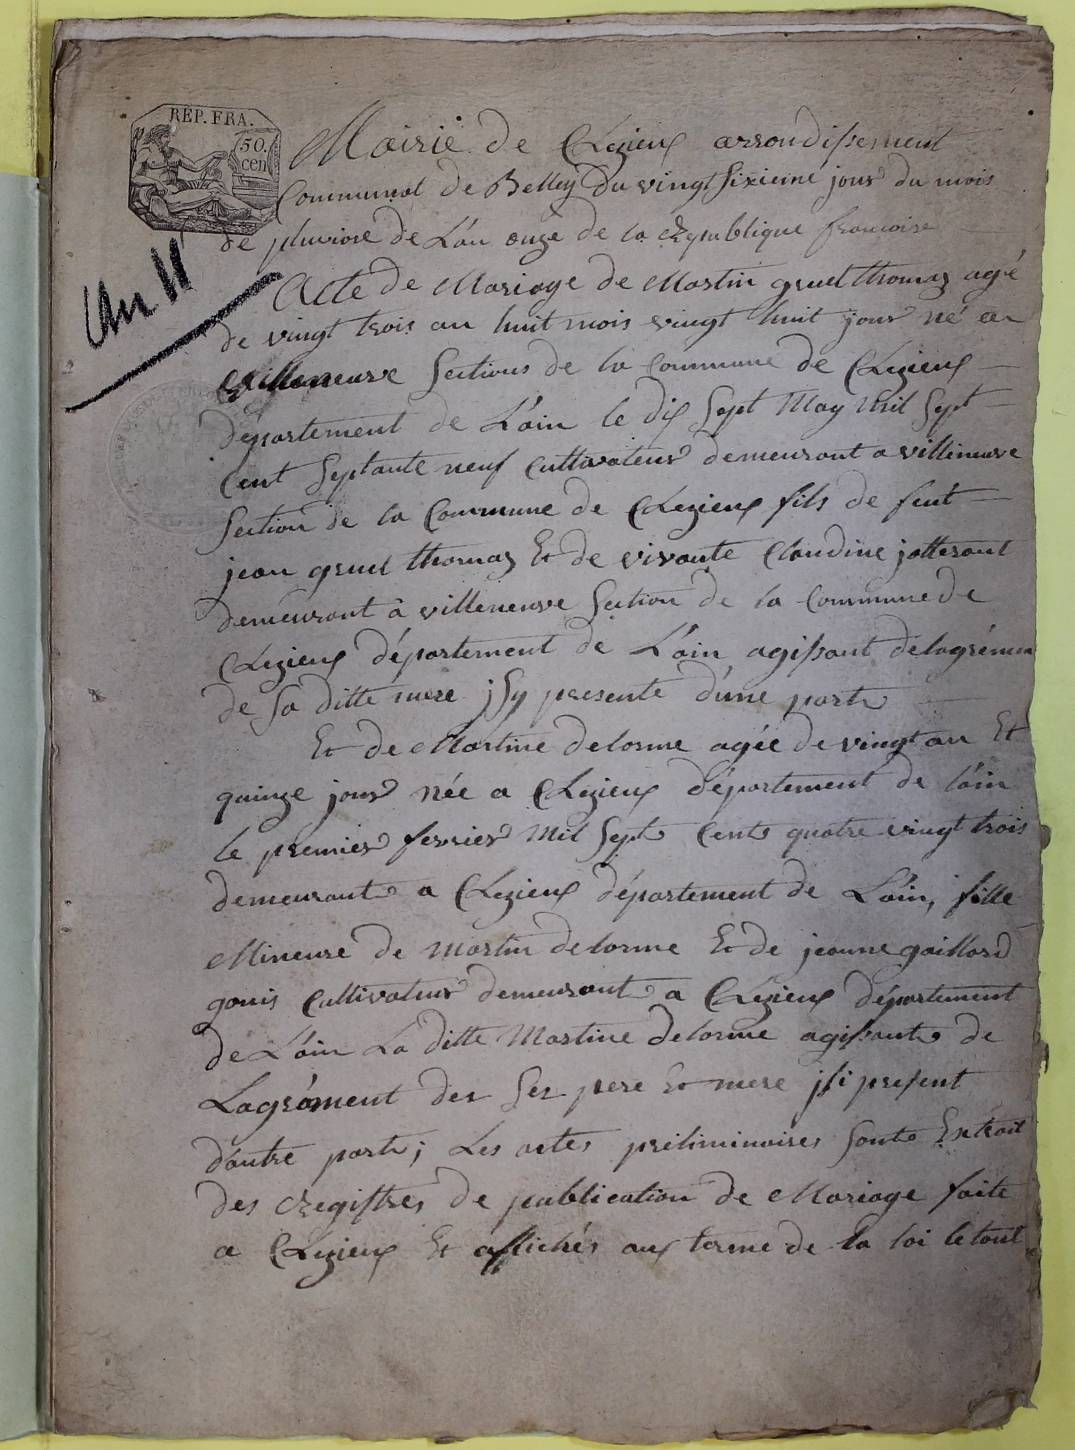 REP. FRA.
50.
cen
An 11
Mairie de Chezieux arrondissement
Communal de Belley Du vingt sixieme jour du mois
de pluviose de L'an onze de la Republique francoise
Acte de Mariage de Martin gruel thomaz agé
de vingt trois an huit mois vingt huit jour né a
villeneuve Sections de la Commune de Chezieux
département de L'ain le dix Sept May Mil Sept
Cent Septante neuf Cultivateur demeurant a villeneuve
Section de la Commune de Chezieux fils de feut
jean gruel thomaz Et de vivante Claudine jotterant
demeurant à villeneuve Section de la Commune de
Chezieux département de L'ain agissant de lagrémen
de Sa ditte mere jsy presente d'une part
Et de Martine delorme agée de vingt an Et
quinze jour née a Chezieux département de l'ain
le premier fevrier Mil Sept Cent quatre vingt trois
demeurant a Chezieux département de L'ain, fille
Mineure de Martin delorme Et de jeanne gaillard
gonis Cultivateur demeurant a Chezieux département
de L'ain La ditte Martine delorme agissante de
Lagrément der Ses pere Et mere jsi present
d'autre part; Les actes préliminaires Sont Extrait
des Registres de publication de Mariage faite
a Chezieux Et affichés aux terme de la loi le tout